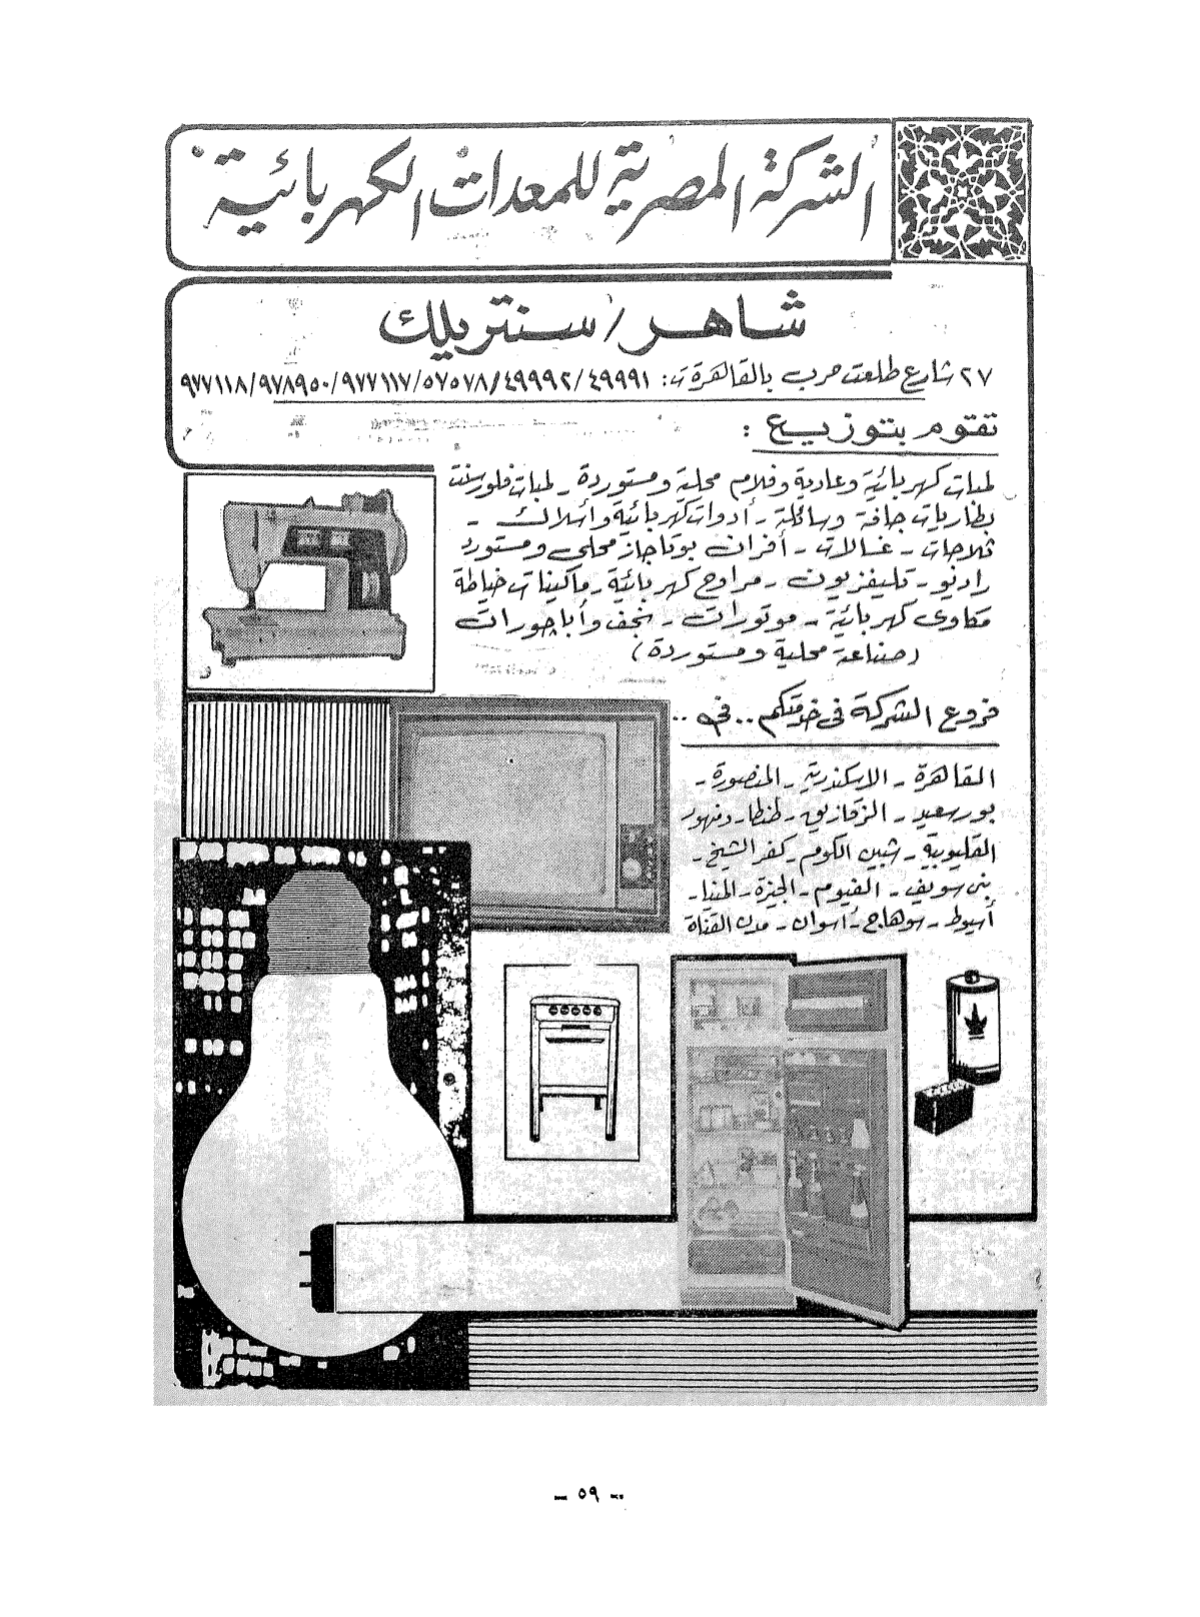 الشركة المصرية للمعدات الكهربائية
شاهر/سنتريلك
٢٧ شارع طلعت حرب بالقاهرة ت: ٤٩٩٩١/٤٩٩٩٢/٥٧٥٧٨/٩٧٧١١٧/٩٧٨٩٥٠/٩٧٧١١٨
تقوم بتوزيع :
لمبات كهربائية وعادية وفلام محلية ومستوردة - لمبات فلورسنت
بطاريات جافة وسائلة - أدوات كهربائية وأسلاك -
ثلاجات - غسالات - أفران بوتاجاز محلى ومستورد
راديو - تليفزيون - مراوح كهربائية - ماكينات خياطة
مكاوى كهربائية - موتورات - نجف وأباجورات
(صناعة محلية ومستوردة)
فروع الشركة فى خدمتكم .. فى ..
القاهرة - الاسكندرية - المنصورة -
بورسعيد - الزقازيق - طنطا - دمنهور
القليوبية - شبين الكوم - كفر الشيخ -
بنى سويف - الفيوم - الجيزة - المنيا -
أسيوط - سوهاج - أسوان - مدن القناة
- ٥٩ -